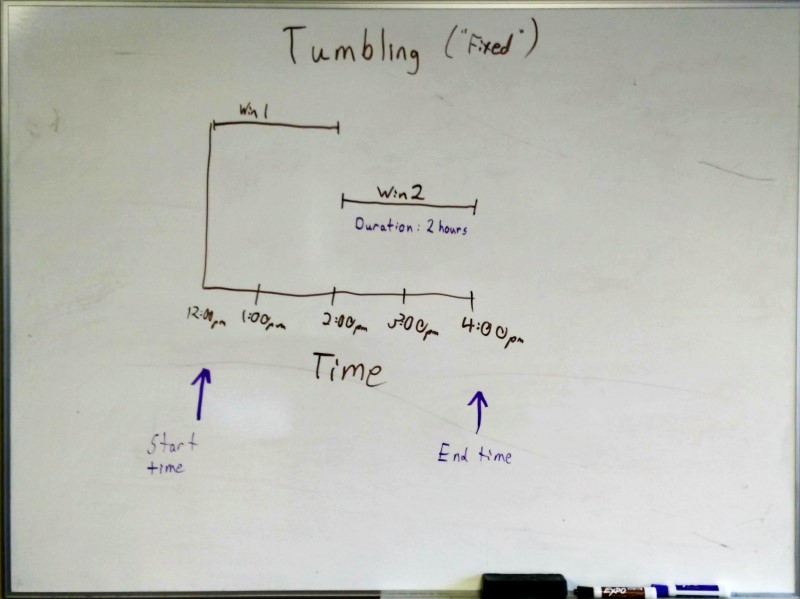 Tumbling ("Fixed")
Win 1
Win 2
Duration: 2 hours
12:00pm 1:00pm 2:00pm 3:00pm 4:00pm
Time
Start
time
End time
EXPO